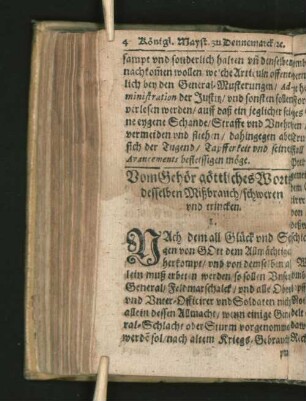 4 Königl. Mayst. zu Dennemarck ꝛc.
sampt und sonderlich halten uñ dinselben
nachkomen wollen, welche Articuln offent
lich bey den General-Musterungen, Ad-
ministration der Justiz, und sonsten sollen
verlesen werden, auff daß ein jeglicher seine
eygene Schande, Straffe und
vermeiden und fliehen, dahingegen aber
sich der Tugend, Tapfferkeit und seines
Avancements befleissigen möge.
Vom Gehör göttliches Wort
desselben Mißbrauch, schweren
und trincken.
1.
NAch dem all Glück und Se-
gen von GOtt dem Allmächtigen
herkompt, und von demselben al-
lein muß erbeten werden, so sollen Unser
General, Feldmarschalck, und alle Ober-
und Unter-Officirer und Soldaten nicht
allein dessen Allmacht, wenn einige Gene-
ral-Schlacht oder Sturm vorgenommen
werdē sol, nach altem Kriegs-Gebrauch